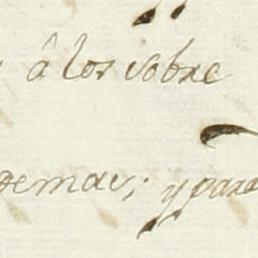 â los sobre
demas; y para